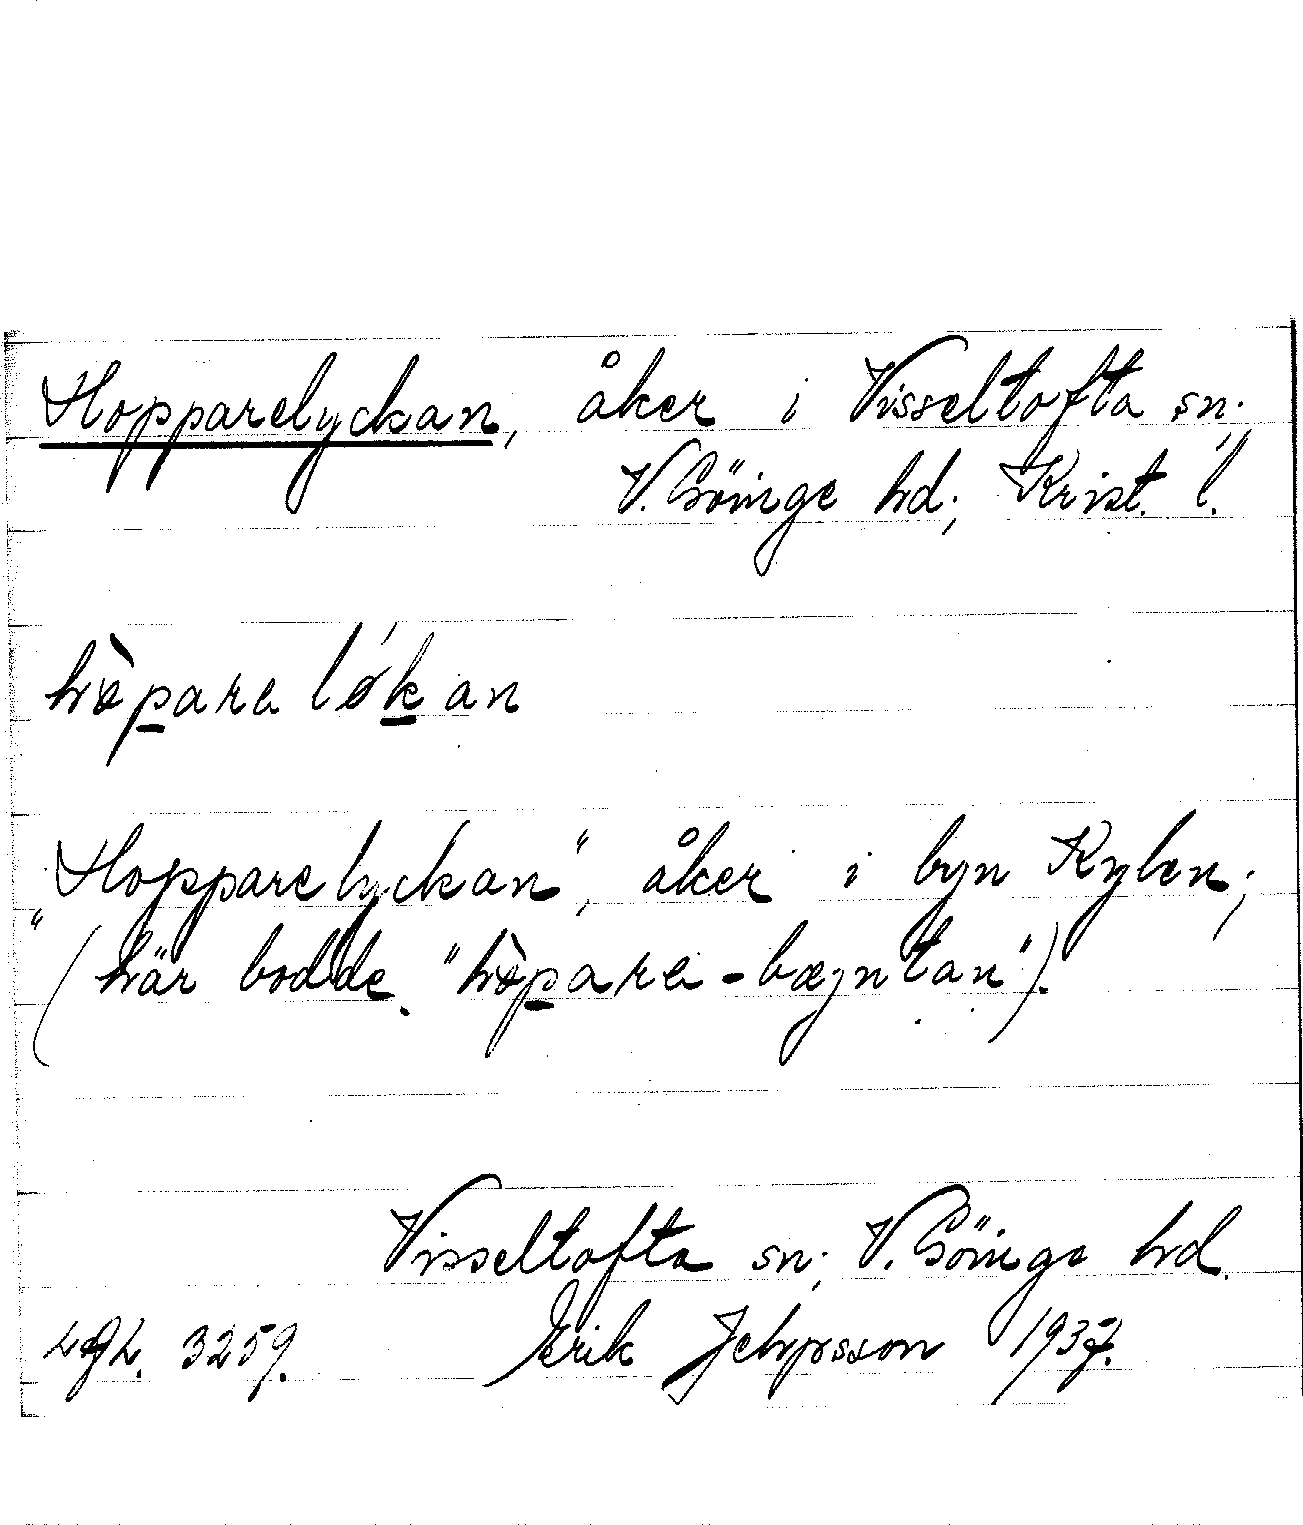 Hopparelyckan, åker i Visseltofta sn;
V. Göinge hd; Krist. l.
hòpare lǿkan
"Hopparelyckan", åker i byn Kylen;
(här bodde "hòpare-bæŋtan").
Visseltofta sn; V. Göinge hd.
3259. Erik Jeppsson 1937.